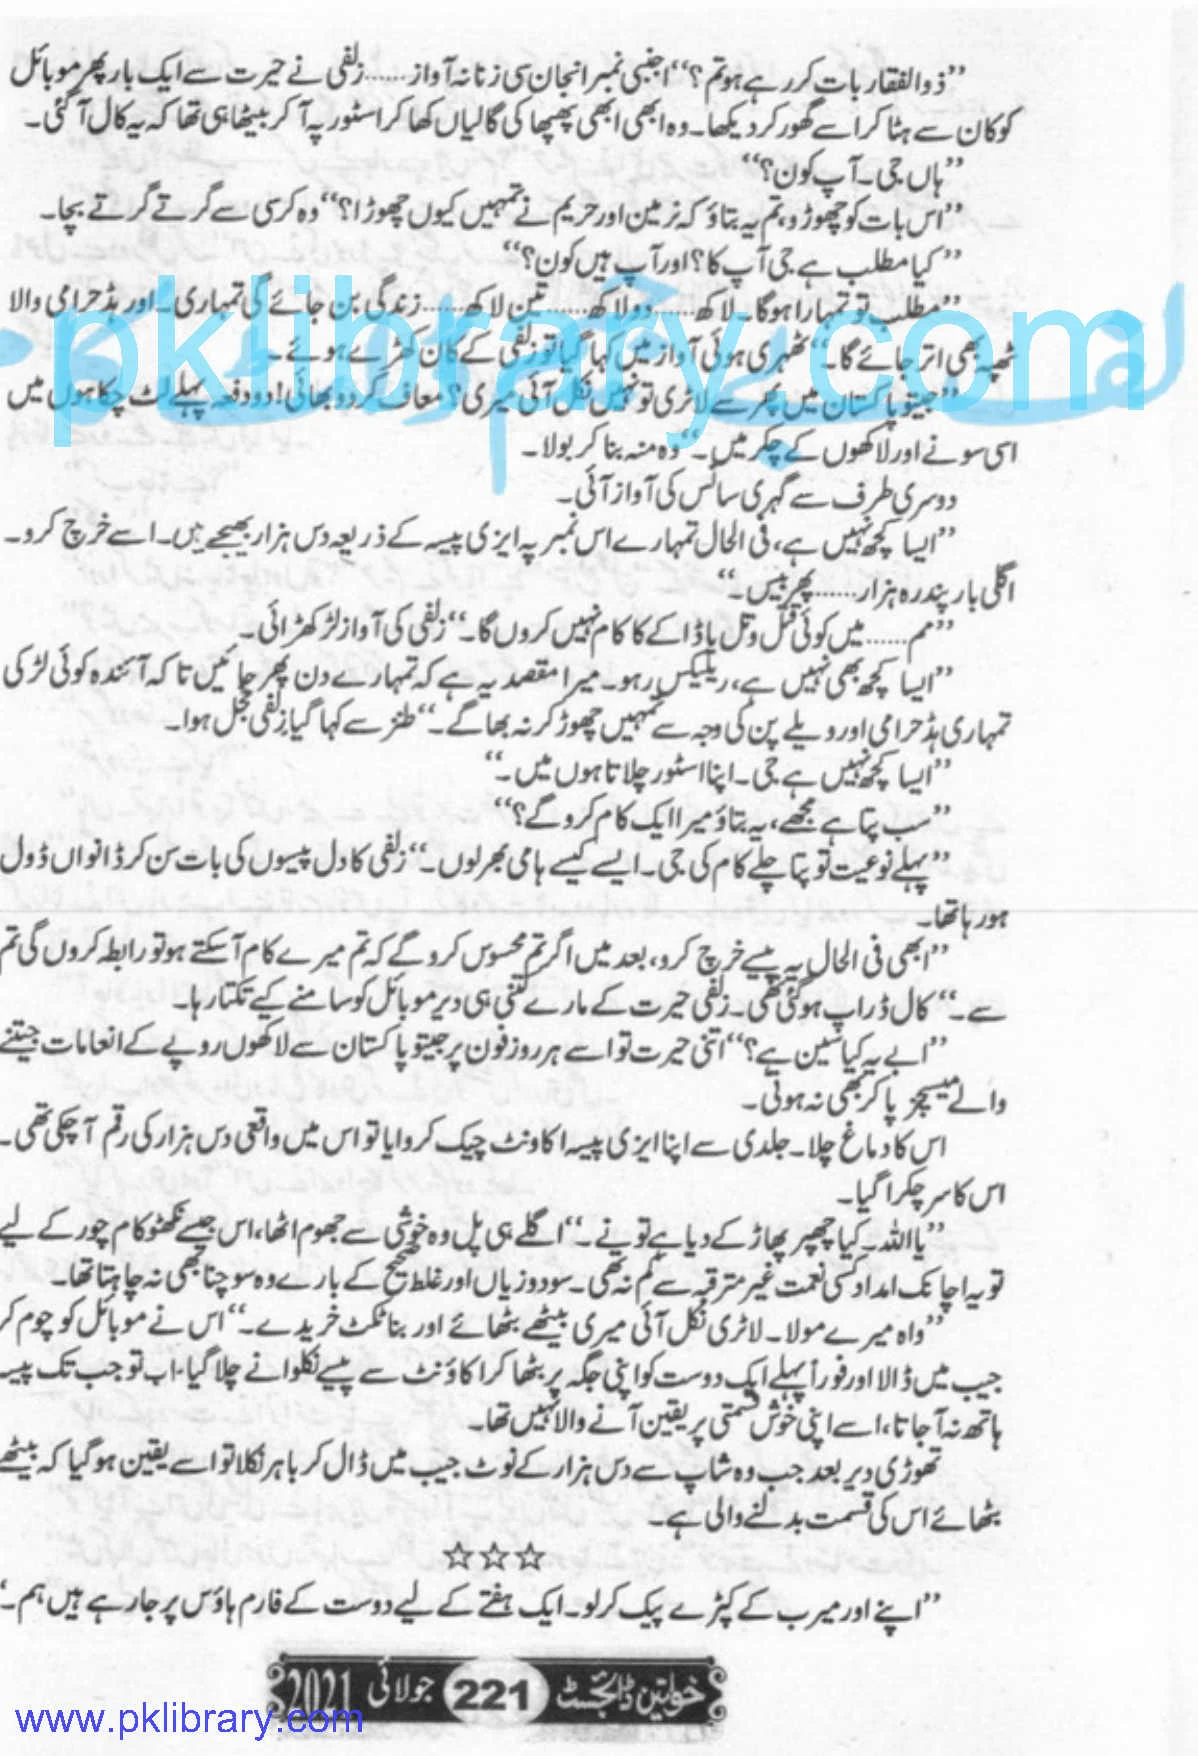 ”ذوالفقار بات کر رہے ہو تم؟“ اجنبی نمبر انجان سی زنانہ آواز...... زلفی نے حیرت سے ایک بار پھر موبائل
کو کان سے ہٹا کر اسے گھور کر دیکھا۔ وہ ابھی ابھی پھپھا کی گالیاں کھا کر اسٹور پہ آ کر بیٹھا ہی تھا کہ یہ کال آ گئی۔
”ہاں جی۔ آپ کون؟“
”اس بات کو چھوڑو، تم یہ بتاؤ کہ نرمین اور حریم نے تمہیں کیوں چھوڑا؟“ وہ کرسی سے گرتے گرتے بچا۔
”کیا مطلب ہے جی آپ کا؟ اور آپ ہیں کون؟“
”مطلب تو تمہارا ہوگا۔ لاکھ...... دو لاکھ...... تین لاکھ...... زندگی بن جائے گی تمہاری۔ اور ہڈ حرامی والا
ٹھپہ بھی اتر جائے گا۔“ ٹھہری ہوئی آواز میں کہا گیا تو زلفی کے کان کھڑے ہوئے۔
”جیتو پاکستان میں پھر سے لاٹری تو نہیں نکل آئی میری؟ معاف کر دو بھائی! دو دفعہ پہلے لٹ چکا ہوں میں
اسی سونے اور لاکھوں کے چکر میں۔“ وہ منہ بنا کر بولا۔
دوسری طرف سے گہری سانس کی آواز آئی۔
”ایسا کچھ نہیں ہے، فی الحال تمہارے اس نمبر پہ ایزی پیسہ کے ذریعہ دس ہزار بھیجے ہیں۔ اسے خرچ کرو۔
اگلی بار پندرہ ہزار...... پھر بیس۔“
”مم...... میں کوئی قتل وتل یا ڈاکے کا کام نہیں کروں گا۔“ زلفی کی آواز لڑکھڑائی۔
”ایسا کچھ بھی نہیں ہے، ریلیکس رہو۔ میرا مقصد یہ ہے کہ تمہارے دن پھر جائیں تاکہ آئندہ کوئی لڑکی
تمہاری ہڈ حرامی اور ویلے پن کی وجہ سے تمہیں چھوڑ کر نہ بھاگے۔“ طنز سے کہا گیا زلفی خجل ہوا۔
”ایسا کچھ نہیں ہے جی۔ اپنا اسٹور چلاتا ہوں میں۔“
”سب پتا ہے مجھے، یہ بتاؤ میرا ایک کام کرو گے؟“
”پہلے نوعیت تو پتا چلے کام کی جی۔ ایسے کیسے ہامی بھر لوں۔“ زلفی کا دل پیسوں کی بات سن کر ڈانواں ڈول
ہو رہا تھا۔
”ابھی فی الحال یہ پیسے خرچ کرو، بعد میں اگر تم محسوس کرو گے کہ تم میرے کام آ سکتے ہو تو رابطہ کروں گی تم
سے۔“ کال ڈراپ ہو گئی تھی۔ زلفی حیرت کے مارے کتنی ہی دیر موبائل کو سامنے کیے تکتا رہا۔
”ابے یہ کیا سین ہے؟“ اتنی حیرت تو اسے ہر روز فون پر جیتو پاکستان سے لاکھوں روپے کے انعامات جیتنے
والے میسجز پا کر بھی نہ ہوتی۔
اس کا دماغ چلا۔ جلدی سے اپنا ایزی پیسہ اکاونٹ چیک کروایا تو اس میں واقعی دس ہزار کی رقم آ چکی تھی۔
اس کا سر چکرا گیا۔
”یا اللہ۔ کیا چھپر پھاڑ کے دیا ہے تو نے۔“ اگلے ہی پل وہ خوشی سے جھوم اٹھا، اس جیسے نکھٹو کام چور کے لیے
تو یہ اچانک امداد کسی نعمت غیر مترقبہ سے کم نہ تھی۔ سود و زیاں اور غلط صحیح کے بارے وہ سوچنا بھی نہ چاہتا تھا۔
”واہ میرے مولا۔ لاٹری نکل آئی میری بیٹھے بٹھائے اور بنا ٹکٹ خریدے۔“ اس نے موبائل کو چوم کر
جیب میں ڈالا اور فوراً پہلے ایک دوست کو اپنی جگہ پر بٹھا کر اکاؤنٹ سے پیسے نکلوانے چلا گیا، اب تو جب تک پیسہ
ہاتھ نہ آ جاتا، اسے اپنی خوش قسمتی پر یقین آنے والا نہیں تھا۔
تھوڑی دیر بعد جب وہ شاپ سے دس ہزار کے نوٹ جیب میں ڈال کر باہر نکلا تو اسے یقین ہو گیا کہ بیٹھے
بٹھائے اس کی قسمت بدلنے والی ہے۔
☆☆☆
”اپنے اور میرب کے کپڑے پیک کر لو۔ ایک ہفتے کے لیے دوست کے فارم ہاؤس پر جا رہے ہیں ہم۔“
خواتین ڈائجسٹ 221 جولائی 2021
pklibrary.com
www.pklibrary.com